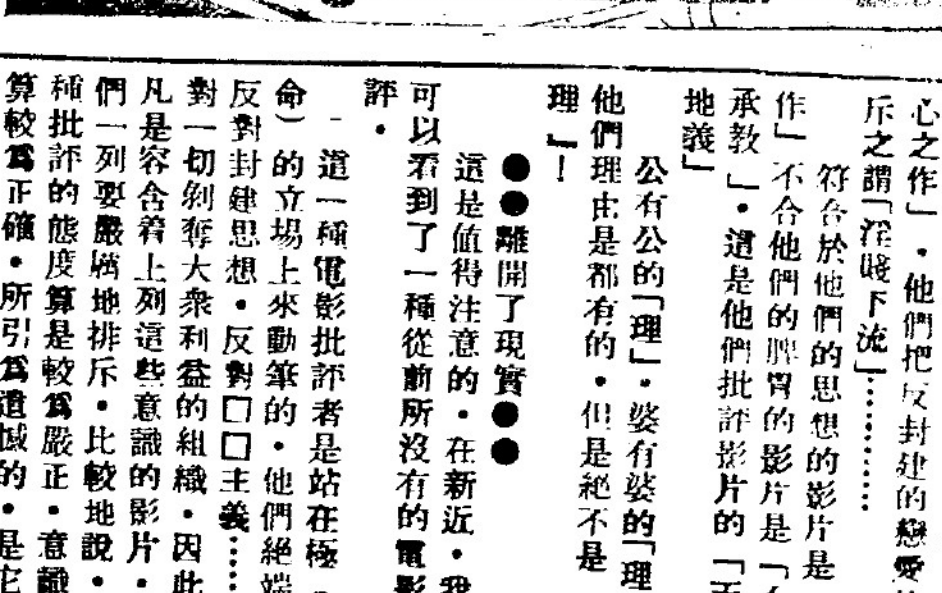 心之作」・他們把反封建的戀愛
斥之謂「淫賤下流」⋯⋯⋯
符合於他們的思想的影片是
作」不合他們的脾胃的影片是「
承教」・這是他們批評影片的「
地義」
公有公的「理」・婆有婆的「理
他們理由是都有的・但是絕不是
理」！
●●離開了現實●●
這是值得注意的・在新近・我
可以看到了一種從前所沒有的電影
評・
這一種電影批評者是站在極
命）的立場上來動筆的・他們絕端
反對封建思想・反對□□主義⋯⋯
對一切剝奪大衆利益的組織・因此
凡是容含着上列這些意識的影片・
們一列要嚴厲地排斥・比較地說・
種批評的態度算是較爲嚴正・意識
算較爲正確・所引爲遺憾的・是它